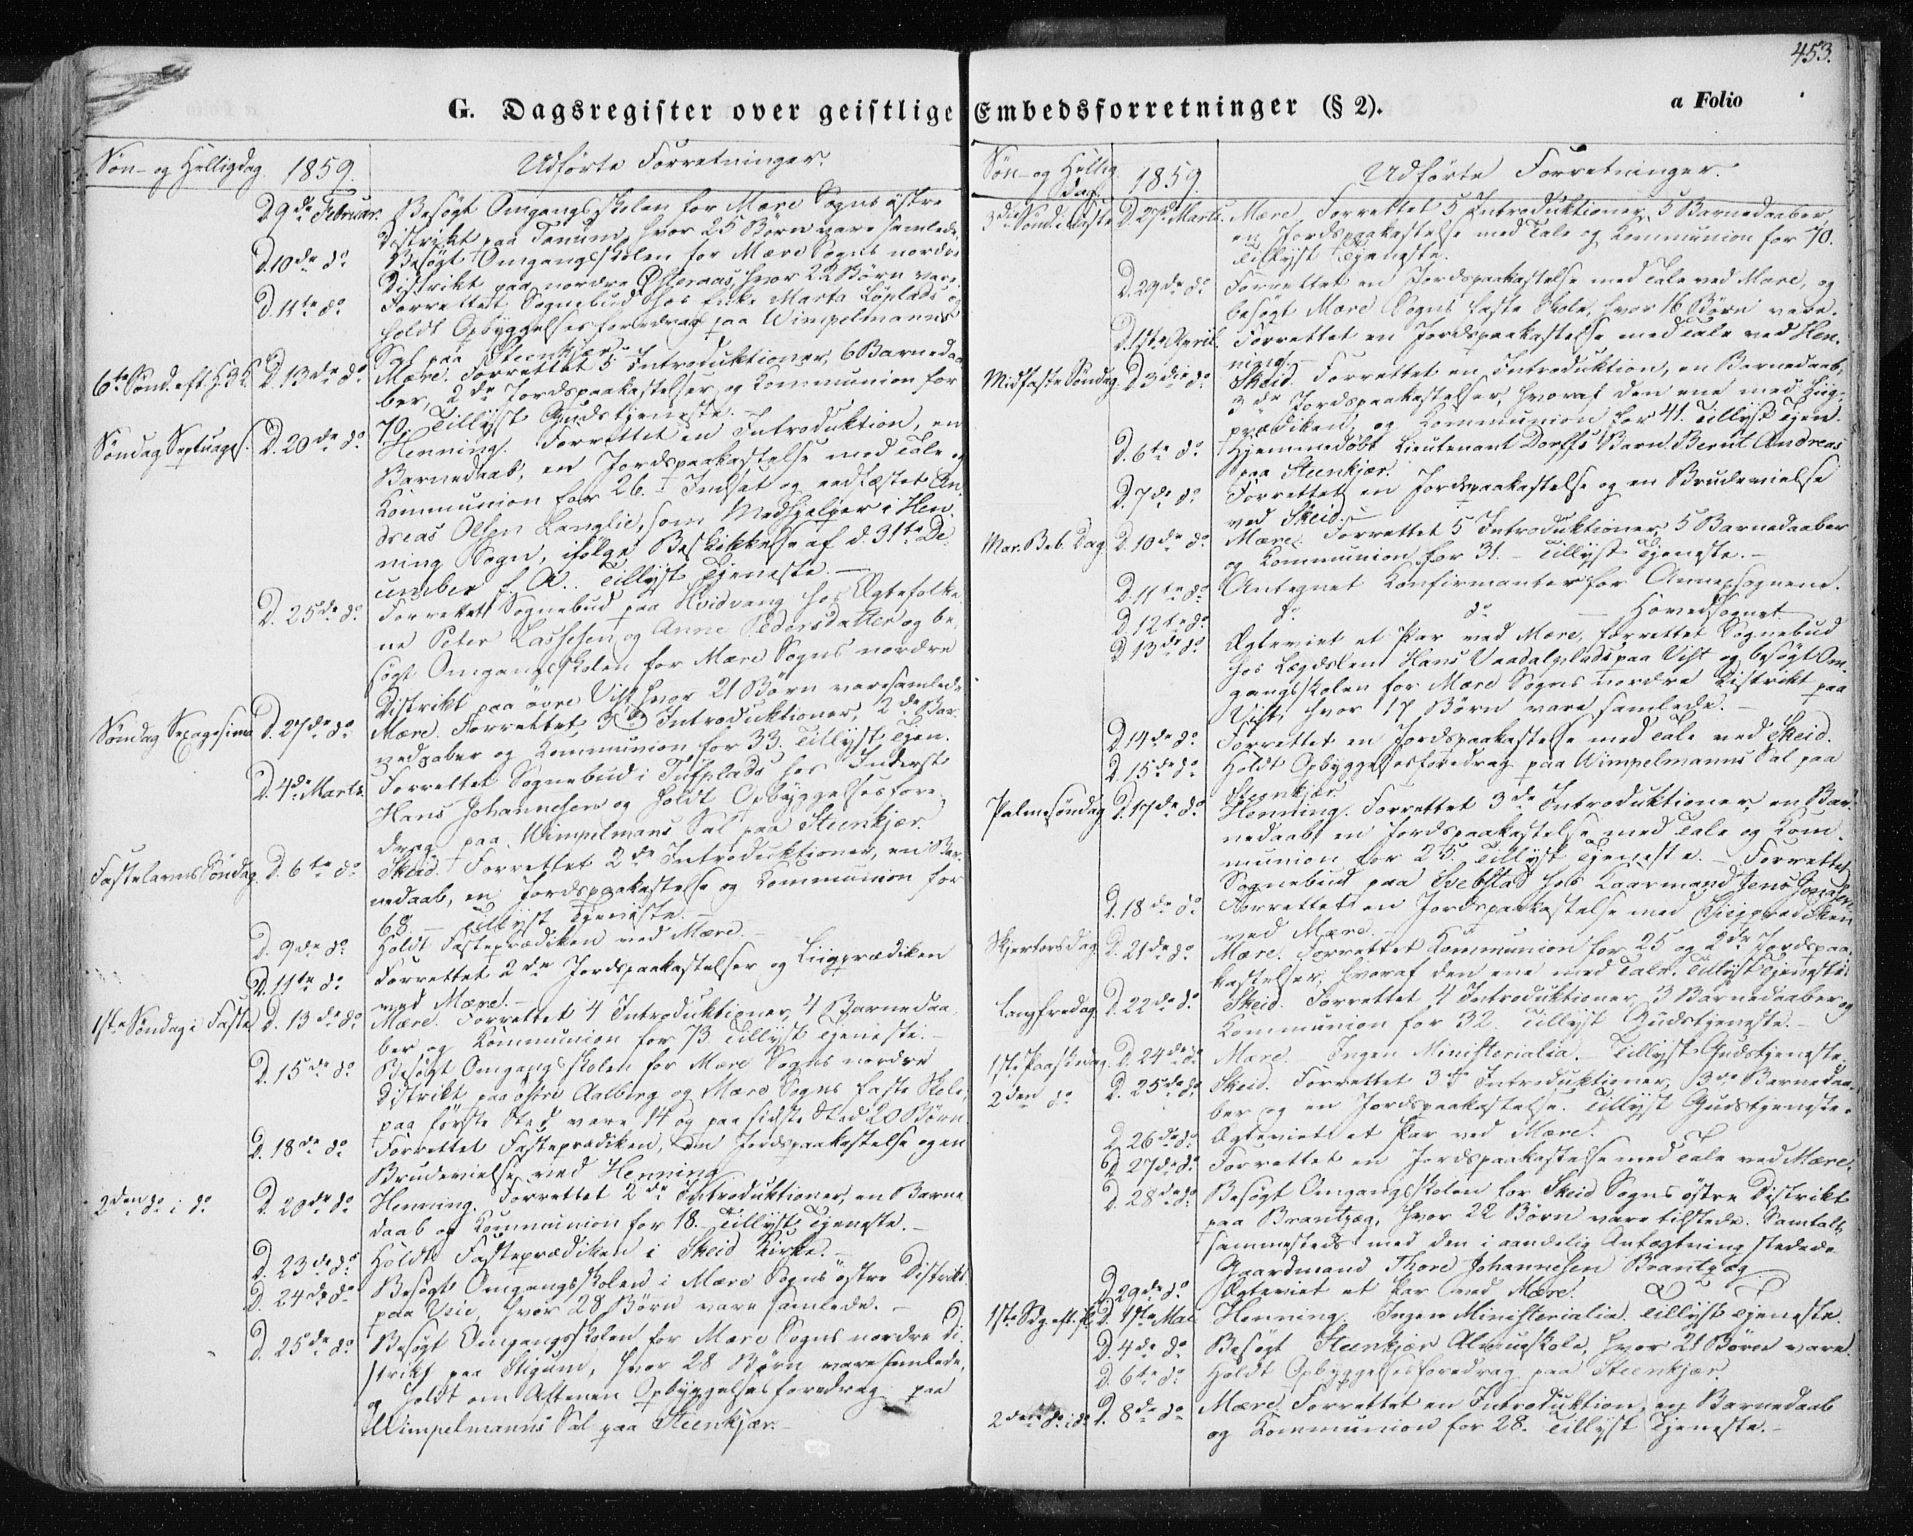 453.
G. Dagsregister over geistlige Embedsforretninger (§ 2).
a Folio
Søn- og Helligdag. 1859. Udførte Forretninger.
D. 9de Februar. Besøgt Omgangsskolen for Mære Sogns østre
Distrikt paa Tanum, hvor 25 Børn vare samlede.
D. 10de do Besøgt Omgangsskolen for Mære Sogns nordre
Distrikt paa nordre Østeraas, hvor 22 Børn vare.
D. 11te do Forrettet Sognebud hos Enke Marta Løplads og
holdt Opbyggelsesforedrag paa Wimpelmanns
Sal paa Steenkjær.
6te Sønd. eft. H. 3 K. D. 13de do Mære. Forrettet 5 Introduktioner, 6 Barnedaa-
ber, 2de Jordspaakastelser og Kommunion for
70. Tillyst Gudstjeneste.
Søndag Septuages. D. 20de do Henning. Forrettet en Introduktion, en
Barnedaab, en Jordspaakastelse med Tale og
Kommunion for 26. Indsat og edfæstet An-
dreas Olsen Langlie, som Medhjelper i Hen-
ning Sogn, ifølge Beskikkelse af d. 31te De-
cember f. A. Tillyst Tjeneste.
D. 25de do Forrettet Sognebud paa Hvidvang hos Ægtefolke-
ne Peter Lassesen og Anne Pedersdatter og be-
søgt Omgangsskolen for Mære Sogns nordre
Distrikt paa øvre Vist, hvor 21 Børn vare samlede.
Søndag Sexagesima D. 27de do Mære. Forrettet 3de Introduktioner, 2de Bar-
nedaaber og Kommunion for 33. Tillyst Tjen.
D. 4de Marts. Forrettet Sognebud i Tufplads hos Inderst
Hans Johannesen og holdt Opbyggelsesfore-
drag paa Wimpelmans Sal paa Steenkjær.
Fastelavns Søndag. D. 6te do Skeid. Forrettet 2de Introduktioner, en Bar-
nedaab, en Jordspaakastelse og Kommunion for
68. – Tillyst Tjeneste. –
D. 9de do Holdt Fasteprædiken ved Mære. –
D. 11te do Forrettet 2de Jordspaakastelser og Liigprædiken
ved Mære. –
1ste Søndag i Faste D. 13de do Mære. Forrettet 4 Introduktioner, 4 Barnedaa-
ber og Kommunion for 73. Tillyst Tjeneste. –
D. 15de do Besøgt Omgangsskolen for Mære Sogns nordre
Distrikt paa østre Aalberg og Mære Sogns faste Skole,
paa første Sted vare 14 og paa sidste Sted 20 Børn.
D. 18de do Forrettet Fasteprædiken, en Jordspaakastelse og en
Brudevielse ved Henning.
2den do i do D. 20de do Henning. Forrettet 2de Introduktioner, en Barne-
daab og Kommunion for 18. Tillyst Tjeneste. –
D. 23de do Holdt Fasteprædiken i Skeid Kirke. –
D. 24de do Besøgt Omgangsskolen i Mære Sogns østre Distrikt
paa Veie, hvor 28 Børn vare samlede. –
D. 25de do Besøgt Omgangsskolen for Mære Sogns nordre Di-
strikt paa Stigum, hvor 28 Børn vare samlede,
og holdt om Aftenen Opbyggelsesforedrag paa
Wimpelmanns Sal paa Steenkjær. –
Søn- og Hellig-
dag. 1859. Udførte Forretninger.
3die Sønd. i Faste D. 27de Marts. Mære. Forrettet 5 Introduktioner, 5 Barnedaaber,
en Jordspaakastelse med Tale og Kommunion for 70.
Tillyst Tjeneste.
D. 29de do Forrettet en Jordspaakastelse med Tale ved Mære, og
besøgt Mære Sogns faste Skole, hvor 16 Børn vare.
D. 1ste April. Forrettet en Jordspaakastelse med Tale ved Hen-
ning. –
Midfaste Søndag. D. 3die do Skeid. Forrettet en Introduktion, en Barnedaab,
3de Jordspaakastelser, hvoraf den ene med Liig-
prædiken, og Kommunion for 41. Tillyst Tjen.
D. 6te do Hjemmedøbt Lieutenant Dorffs Barn Bernt Andreas
paa Steenkjær.
D. 7de do Forrettet en Jordspaakastelse og en Brudevielse
ved Skeid. –
Mar. Beb. Dag. D. 10de do Mære. Forrettet 5 Introduktioner, 5 Barnedaaber
og Kommunion for 31. – Tillyst Tjeneste. –
D. 11te do Antegnet Konfirmanter for Annexsognene.
D. 12te do do do – Hovedsognet.
D. 13de do Ægteviet et Par ved Mære, forrettet Sognebud
hos Lægdslem Hans Vaadalplads paa Vist og besøgt Om-
gangsskolen for Mære Sogns nordre Distrikt paa
Vist, hvor 17 Børn vare samlede. –
D. 14de do Forrettet en Jordspaakastelse med Tale ved Skeid.
D. 15de do Holdt Opbyggelsesforedrag paa Wimpelmanns Sal paa
Steenkjær.
Palmesøndag. D. 17de do. Henning. Forrettet 3de Introduktioner, en Bar-
nedaab, en Jordspaakastelse med Tale og Kom-
munion for 25. Tillyst Tjeneste. – Forrettet
Sognebud paa Svebstad hos Kaarmand Jens
D. 18de do Forrettet en Jordspaakastelse med Liigprædiken
ved Mære. –
Skjertorsdag. D. 21de do Mære. Forrettet Kommunion for 25 og 2de Jordspaa-
kastelser, hvoraf den ene med Tale. Tillyst Tjeneste.
Langfredag. D. 22de do Skeid. Forrettet 4 Introduktioner, 3 Barnedaaber og
Kommunion for 32. Tillyst Gudstjeneste. –
1ste Paaskedag. D. 24de do Mære. – Ingen Ministerialia. – Tillyst Gudstjeneste.
2den do D. 25de do Skeid. Forrettet 3de Introduktioner, 3de Barnedaa-
ber og en Jordspaakastelse. Tillyst Gudstjeneste.
D. 26de do Ægteviet et Par ved Mære.
D. 27de do Forrettet en Jordspaakastelse med Tale ved Mære.
D. 28de do Besøgt Omgangsskolen for Skeid Sogns østre Distrikt
paa Brantzæg, hvor 22 Børn vare tilstede. Samtalt
sammesteds med den i aandelig Anfægtning stedede
Gaardmand Thore Johannesen Brantzæg.
D. 29de do Ægteviet et Par ved Mære.
1ste Sdg. eft. P. D. 1ste Mai Henning. Ingen Ministerialia. Tillyst Tjeneste.
D. 4de do Besøgt Steenkjær Almueskole, hvor 21 Børn vare.
D. 6te do Holdt Opbyggelsesforedrag paa Steenkjær.
2den do i do D. 8de do Mære. Forrettet en Introduktion, en Barnedaab
og Kommunion for 28. Tillyst Tjeneste. –